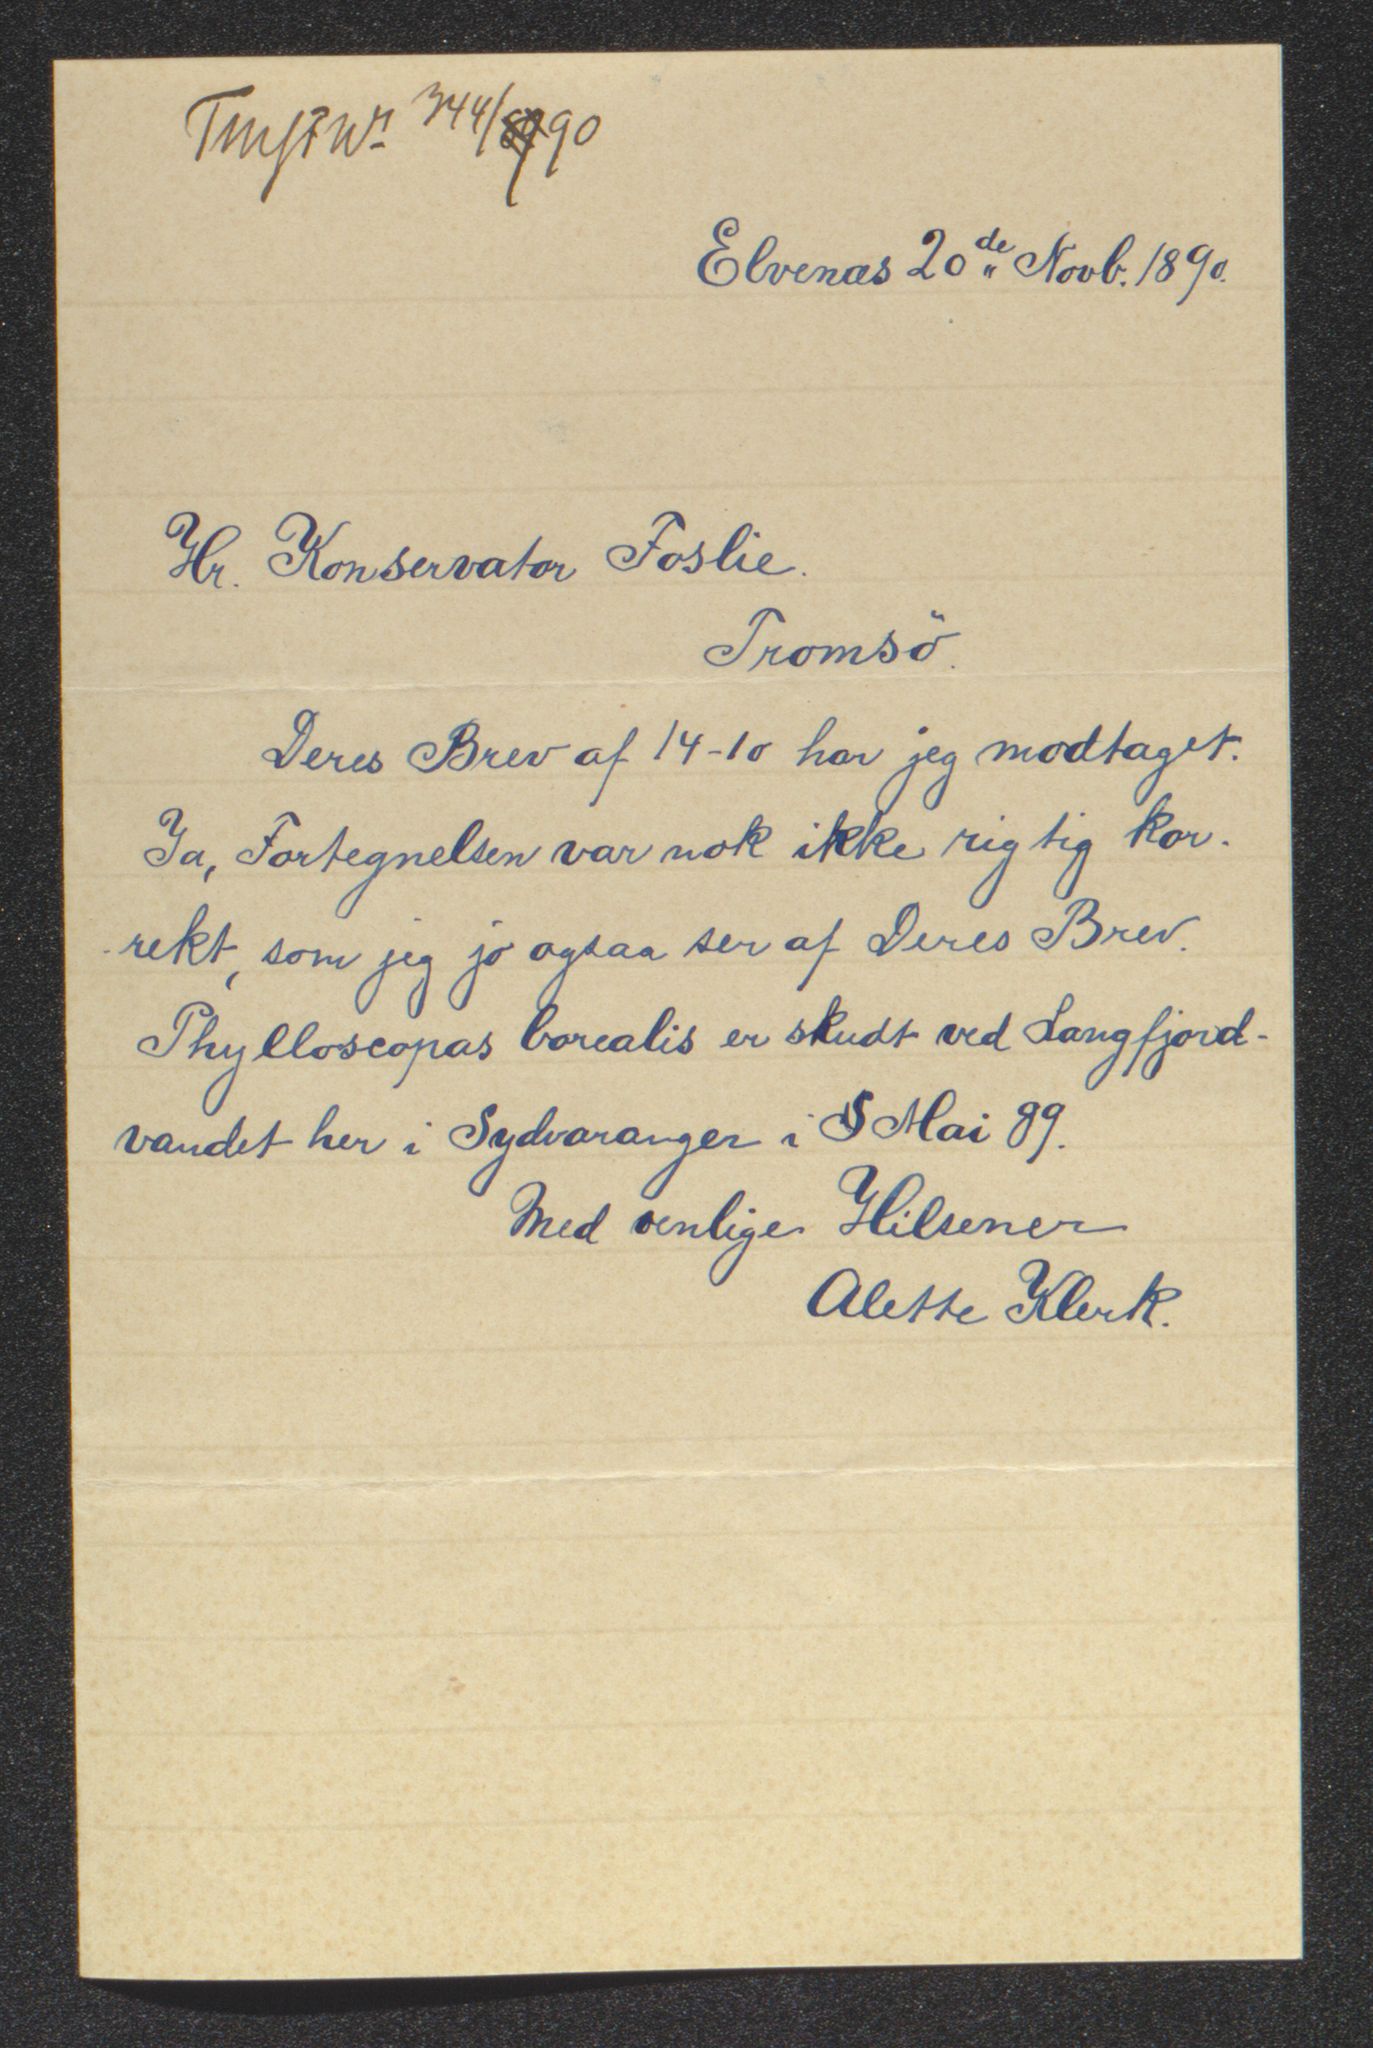 344/90
Elvenæs 20de Novb. 1890.
Hr. Konservator Foslie.
Tromsö.
Deres Brev af 14-10 har jeg modtaget.
Ja, Fortegnelsen var nok ikke rigtig kor-
-rekt, som jeg jo ogsaa ser af Deres Brev.
Phylloscopas borealis er skudt ved Langfjord-
vandet her i Sydvaranger i Mai 89.
Med venlige Hilsener
Alette Klerk.